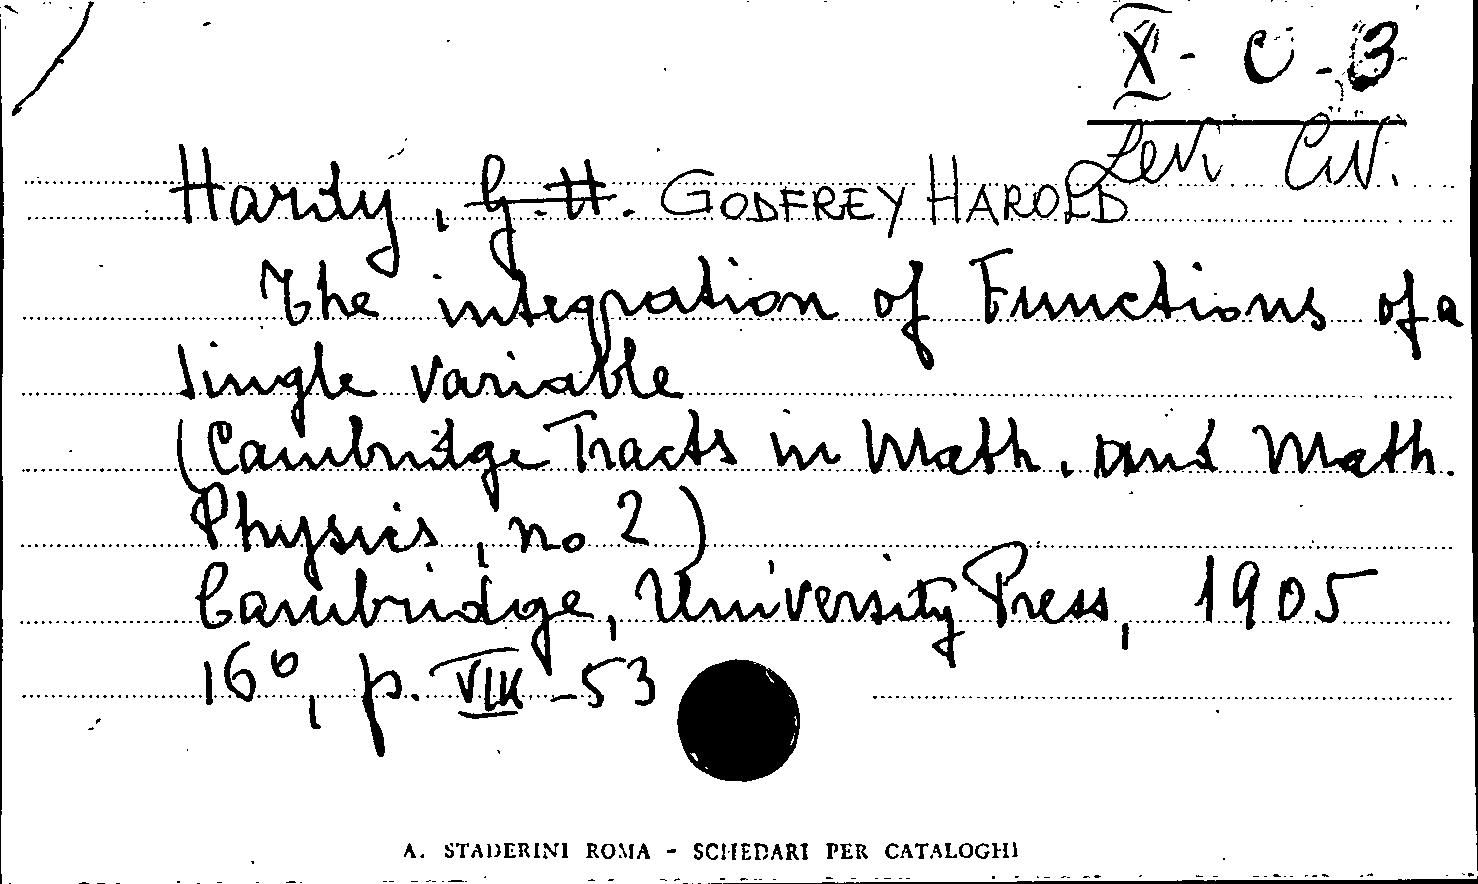 X - C - 3
Levi Civ.
Hardy, G.H. GODFREY HAROLD
The integration of Functions of a
single variable
(Cambridge Tracts in Math. and Math.
Physics, no 2)
Cambridge, University Press, 1905
16°, p. VIII - 53
A. STADERINI ROMA - SCHEDARI PER CATALOGHI